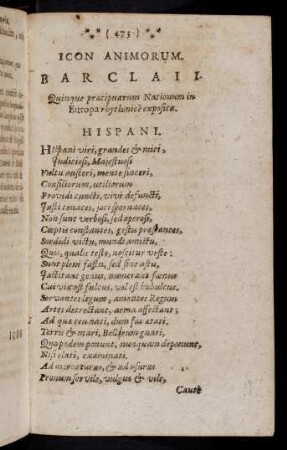 ( 473 )
ICON ANIMORUM.
BARCLAII.
Quinque præcipuarum Nationum in
Europa rhythmicè expositæ.
HISPANI.
HIspani viri, grandes & miri,
Judiciosi, Majestuosi
Vultu austeri, mente sinceri,
Consiliorum, utiliorum
Providi cuncti, vivi defuncti,
Justi tenaces, joci
Non sunt verbosi, sed operosi,
Cœptis constantes, gestu præstantes,
Sordidi victu, mundi amictu,
Quis, qualis testis, noscitur veste:
Sunt pleni fastu, sed sine astu,
Jactitant genus, numerant fœnus
Cui vix est sulcus, vel est bubulcus.
Servantes legum, amantes Regum
Artes detrectant, arma affectant;
Ad quæ cum nati, dum sint
Terra & mari, Bellorum gnari,
Quo pedem ponunt, nunquam deponunt,
Nisi elati, exanimati.
Ad mercaturas, & ad usuras
Pronum servile, vulgus & vile,
Cautè